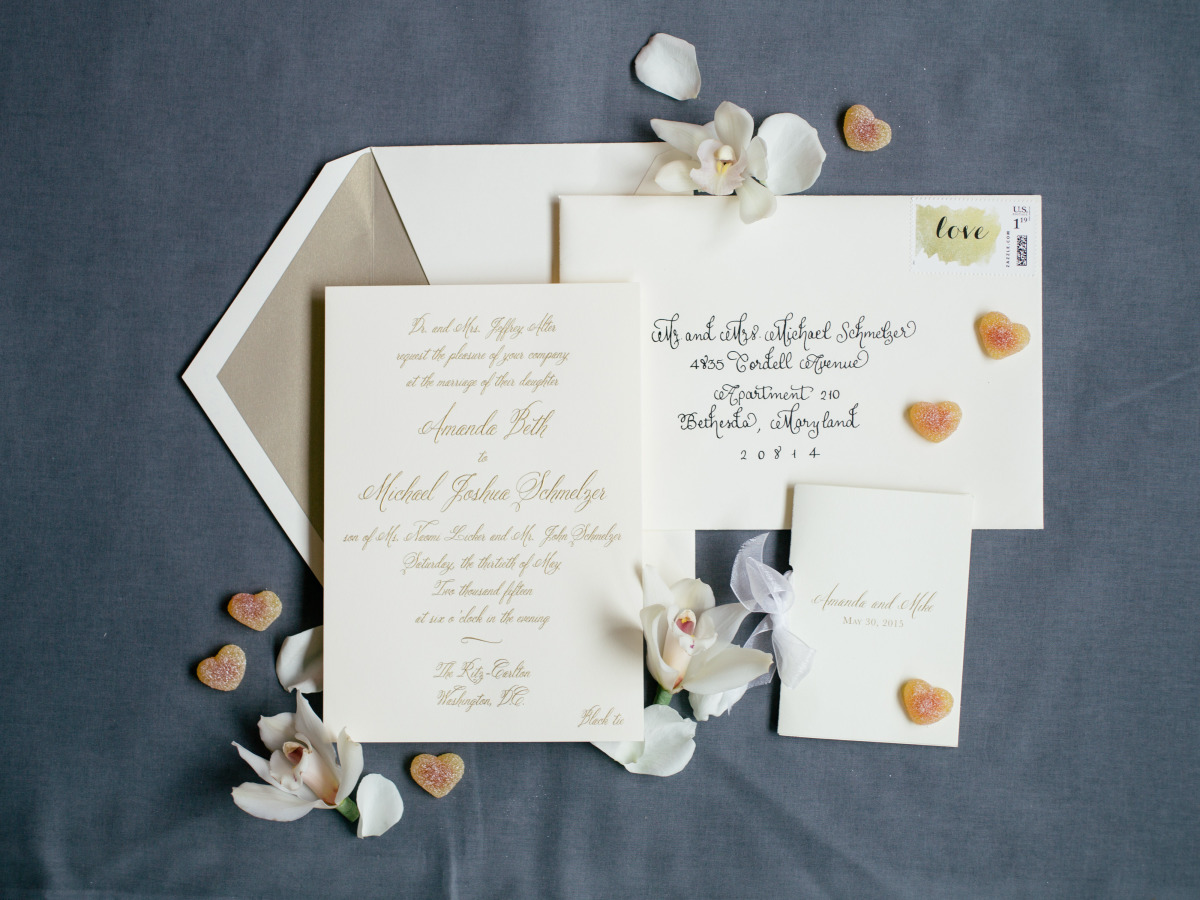 Dr. and Mrs. Jeffrey Alter
request the pleasure of your company
at the marriage of their daughter
Amanda Beth
to
Michael Joshua Schmelzer
son of Ms. Naomi Locker and Mr. John Schmelzer
Saturday, the thirtieth of May
Two thousand fifteen
at six o'clock in the evening
The Ritz-Carlton
Washington, DC
Black tie
love
U.S.
1 19
ZAZZLE.COM
Mr. and Mrs. Michael Schmelzer
4835 Cordell Avenue
Apartment 210
Bethesda, Maryland
20814
Amanda and Mike
MAY 30, 2015